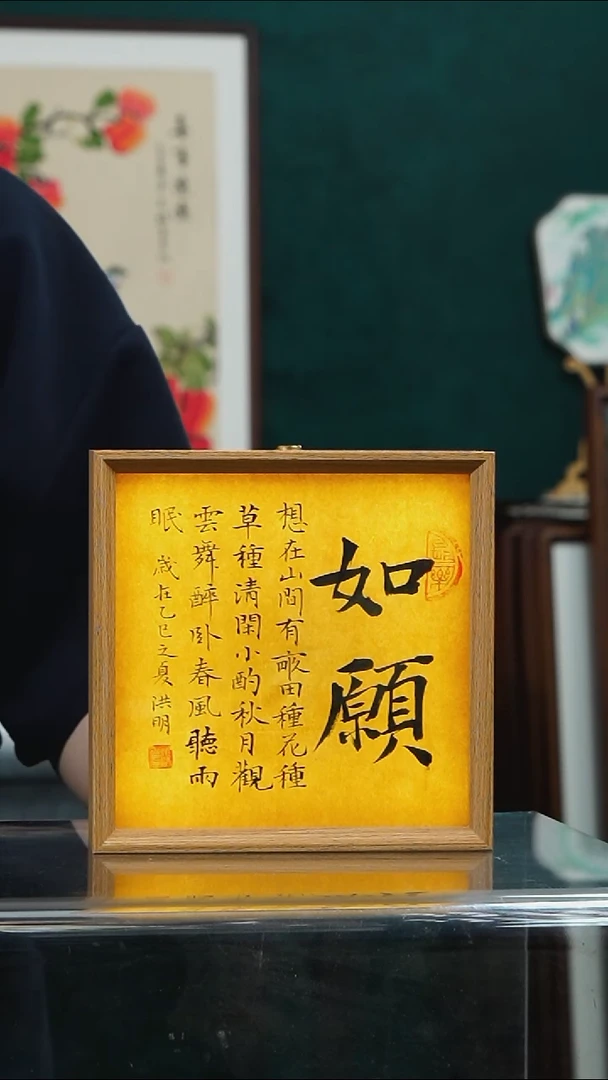 如願
想在山間有畝田種花種
草種清閑小酌秋月觀
雲舞醉卧春風聽雨
眠
歲在乙巳之夏洪明